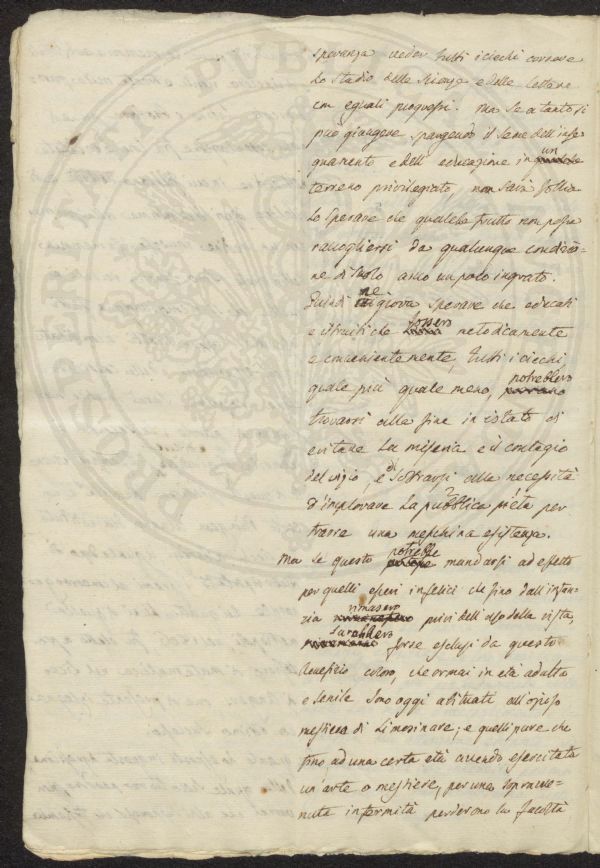 speranza veder tutti i ciechi correre
lo stadio delle Scienze e delle lettere
con eguali progressi. Ma se a tanto si
può giungere spargendo il seme dell'inse
gnamento e dell'educazione in un
terreno privilegiato, non sarà follia
lo sperare che qualche frutto non possa
raccogliersi da qualunque condizio=
ne di suolo anco un poco ingrato.
Quindi ne giova sperare che educati
e istruiti che fossero metodicamente
e convenientemente, tutti i ciechi,
quale più quale meno, potrebbero
trovarsi alla fine in istato di
evitare la miseria e il contagio
del vizio, e di sottrarsi alla necessità
d'implorare la pubblica pietà per
trarre una meschina esistenza.
Ma se questo potrebbe mandarsi ad effetto
per quelli esseri infelici che fino dall'infan=
zia rimasero privi dell'uso della vista,
sarebbero forse esclusi da questo
benefizio coloro, che ormai in età adulta
e senile sono oggi abituati all'ozioso
mestiere di limosinare; e quelli pure che
fino ad una certa età avendo esercitata
un arte o mestiere, per una sopravve=
nuta infermità perderono la facoltà
PROSPERITATI PVB